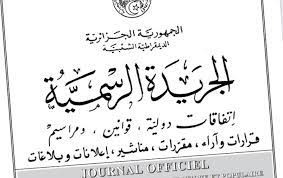 الجمهورية الجزائرية
الديمقراطية الشعبية
الجريدة الرسمية
إتفاقات دولية ، قوانين ، ومراسيم
قرارات وآراء ، مقررات ، مناشير ، إعلانات وبلاغات
JOURNAL OFFICIEL
ET POPULAIRE